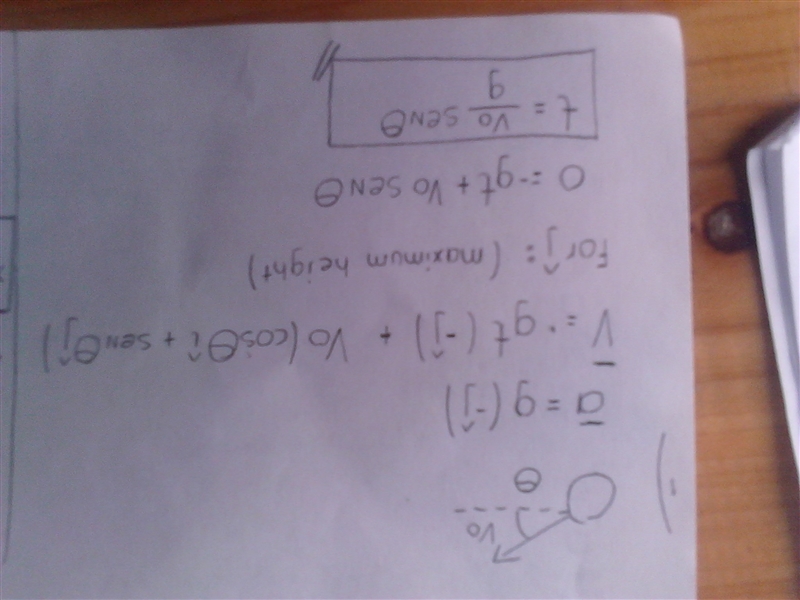 1)
Vo
θ
a̅ = g(-ĵ)
V̅ = gt(-ĵ) + Vo(cosθî + senθĵ)
For ĵ: (maximum height)
0 = -gt + Vo senθ
t = Vo/g senθ